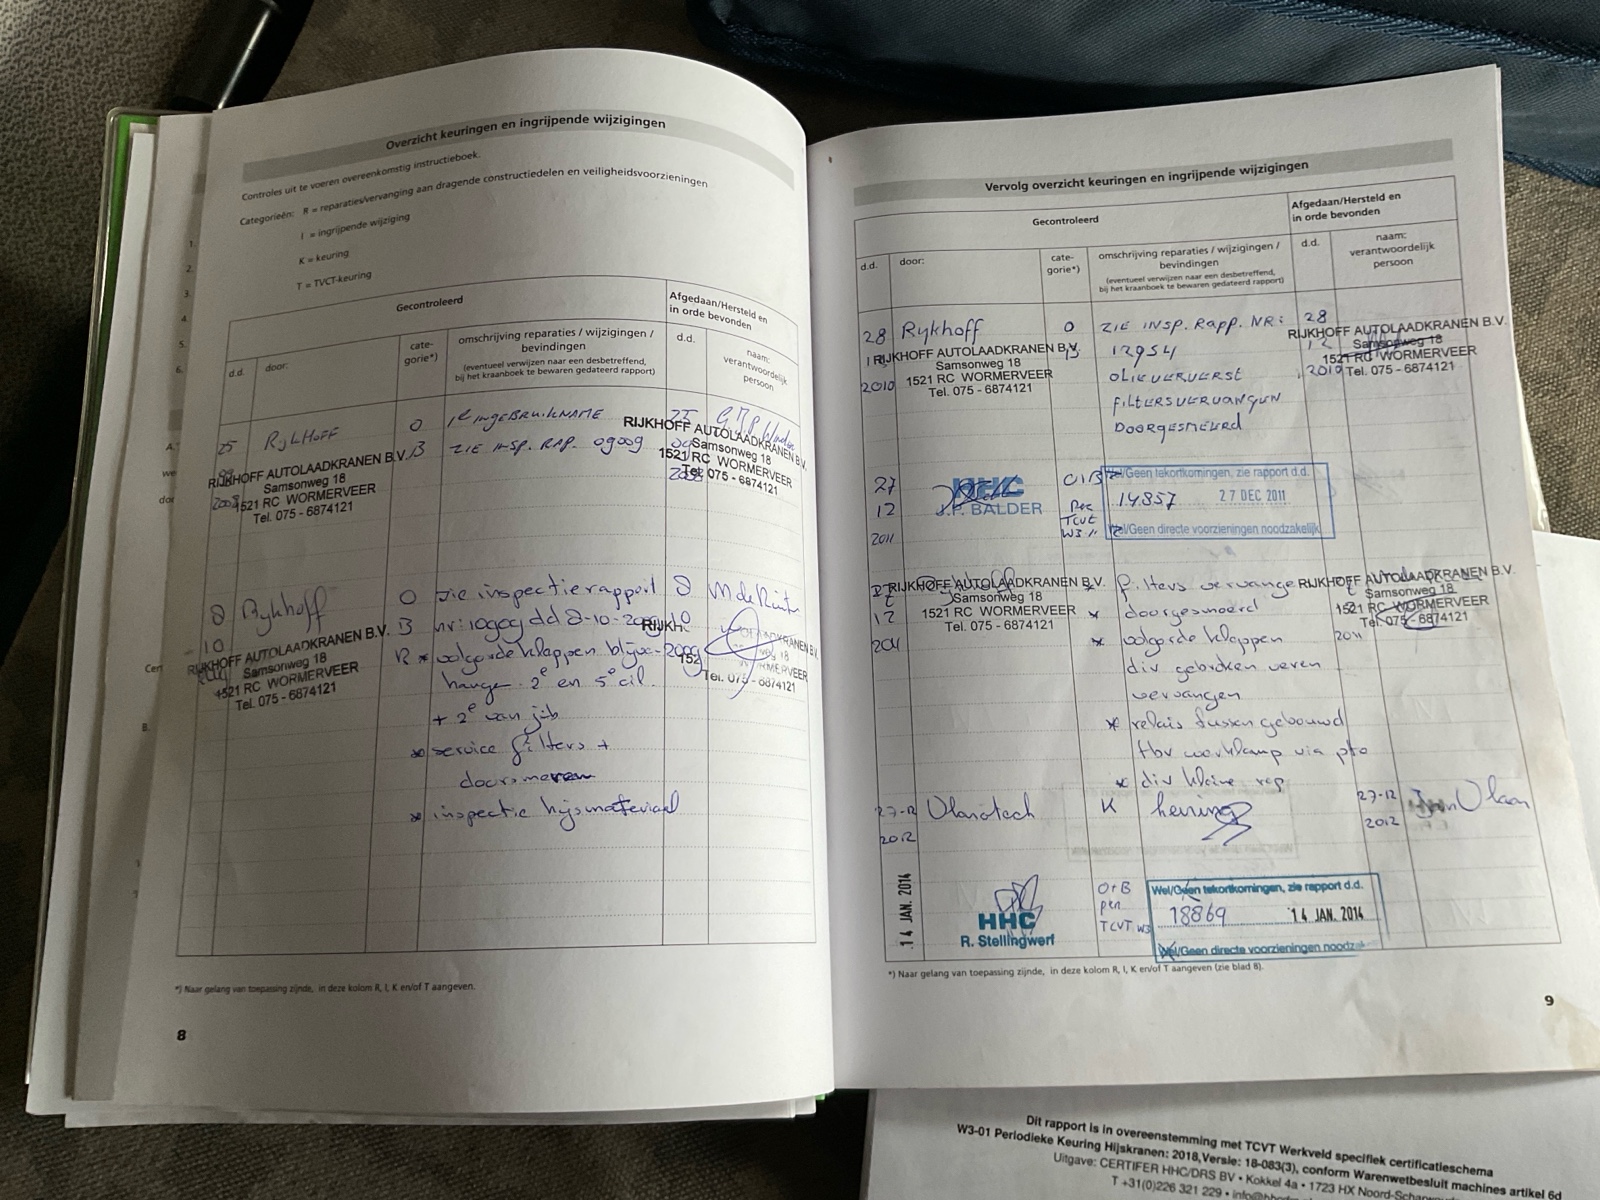 Overzicht keuringen en ingrijpende wijzigingen
Controles uit te voeren overeenkomstig instructieboek.
Categorieën: R = reparaties/vervanging aan dragende constructiedelen en veiligheidsvoorzieningen
I = ingrijpende wijziging
K = keuring
T = TVCT-keuring
Gecontroleerd
Afgedaan/Hersteld en
in orde bevonden
d.d.
door:
cate-
gorie*)
omschrijving reparaties / wijzigingen /
bevindingen
(eventueel verwijzen naar een desbetreffend,
bij het kraanboek te bewaren gedateerd rapport)
d.d.
naam:
verantwoordelijk
persoon
25 RijkHoff O 1e INGEBRUIKNAME
B ZIE INSP. RAP. 09009
2008
RIJKHOFF AUTOLAADKRANEN B.V.
Samsonweg 18
1521 RC WORMERVEER
Tel. 075 - 6874121
RIJKHOFF AUTOLAADKRANEN B.V.
Samsonweg 18
1521 RC WORMERVEER
Tel. 075 - 6874121
8 Rijkhoff O zie inspectierapport 8 M de Ruiter
10 B nr: 10909 dd 8-10-2009 10
R * volgorde klappen blijven
hangen 2e en 5e cil.
+ 2e van jib
* service filters +
doorsmeren
* inspectie hijsmateriaal
RIJKHOFF AUTOLAADKRANEN B.V.
Samsonweg 18
1521 RC WORMERVEER
Tel. 075 - 6874121
*) Naar gelang van toepassing zijnde, in deze kolom R, I, K en/of T aangeven.
8
Vervolg overzicht keuringen en ingrijpende wijzigingen
Gecontroleerd
Afgedaan/Hersteld en
in orde bevonden
d.d.
door:
cate-
gorie*)
omschrijving reparaties / wijzigingen /
bevindingen
(eventueel verwijzen naar een desbetreffend,
bij het kraanboek te bewaren gedateerd rapport)
d.d.
naam:
verantwoordelijk
persoon
28 Rijkhoff O ZIE INSP. RAPP. NR: 28
B 12954 12
2010 OLIEVERVERST 2010
FILTERSVERVANGEN
DOORGESMEERD
RIJKHOFF AUTOLAADKRANEN B.V.
Samsonweg 18
1521 RC WORMERVEER
Tel. 075 - 6874121
RIJKHOFF AUTOLAADKRANEN B.V.
Samsonweg 18
1521 RC WORMERVEER
Tel. 075 - 6874121
27
12
2011
HHC
J.P. BALDER
O+B
Per
TCVT
W3
Wel/Geen tekortkomingen, zie rapport d.d.
14857 27 DEC 2011
Wel/Geen directe voorzieningen noodzakelijk
27 * filters vervangen
12 * doorgesmeerd 12
2011 * volgorde klappen 2011
div gebroken veren
vervangen
* relais tussen gebouwd
tbv werklamp via pto
* div kleine rep
RIJKHOFF AUTOLAADKRANEN B.V.
Samsonweg 18
1521 RC WORMERVEER
Tel. 075 - 6874121
RIJKHOFF AUTOLAADKRANEN B.V.
Samsonweg 18
1521 RC WORMERVEER
Tel. 075 - 6874121
27-12 Vlanotech K keuring 27-12
2012 2012
14 JAN. 2014
HHC
R. Stellingwerf
O+B
per
TCVT W3
Wel/Geen tekortkomingen, zie rapport d.d.
18869 14 JAN. 2014
Wel/Geen directe voorzieningen noodzak
*) Naar gelang van toepassing zijnde, in deze kolom R, I, K en/of T aangeven (zie blad 8).
9
Dit rapport is in overeenstemming met TCVT Werkveld specifiek certificatieschema
W3-01 Periodieke Keuring Hijskranen: 2018, Versie: 18-083(3), conform Warenwetbesluit machines artikel 6d
Uitgave: CERTIFER HHC/DRS BV • Kokkel 4a • 1723 HX Noord-Scharwoude
T +31(0)226 321 229 •